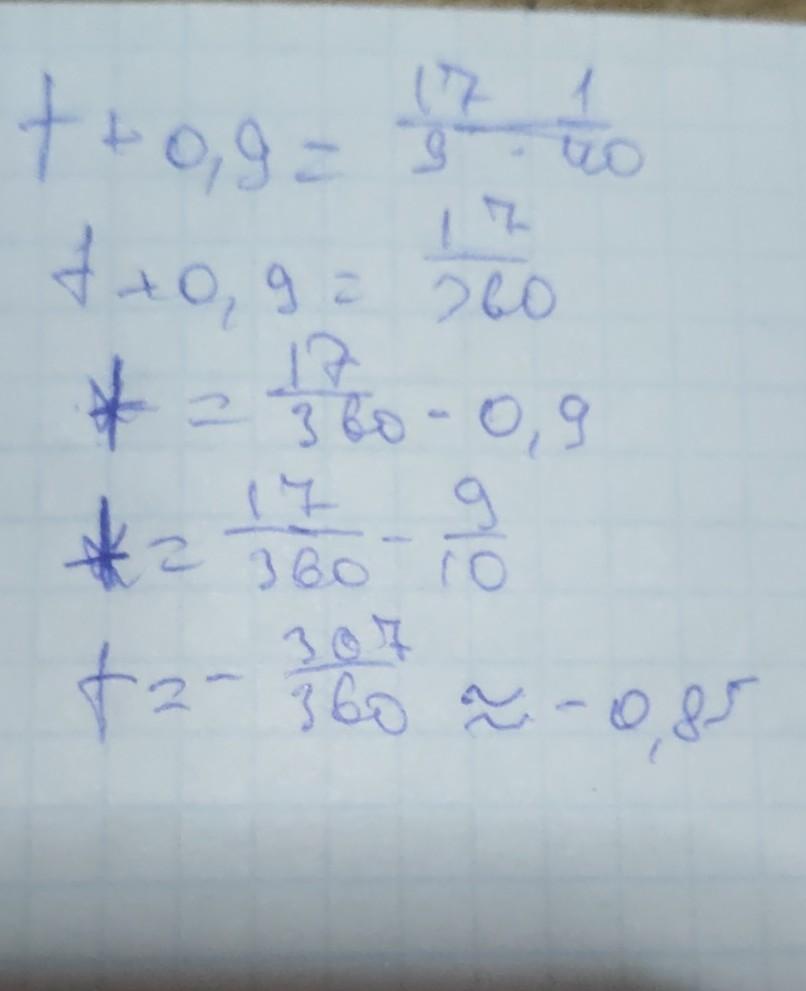 t + 0,9 = 17/9 · 1/40
t + 0,9 = 17/360
t = 17/360 - 0,9
t = 17/360 - 9/10
t = - 307/360 ≈ - 0,85